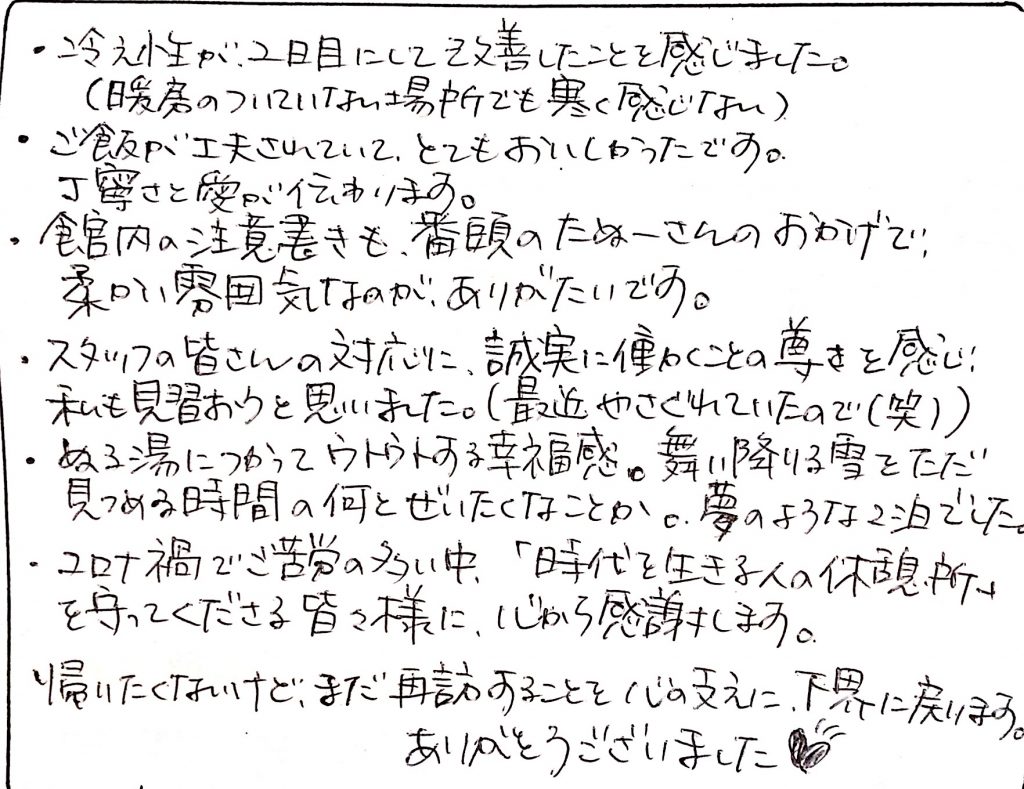 ・冷え性が、2日目にして改善したことを感じました。
(暖房のついていない場所でも寒く感じない)
・ご飯が工夫されていて、とてもおいしかったです。
丁寧さと愛が伝わります。
・館内の注意書きも、番頭のたぬーさんのおかげで、
柔かい雰囲気なのが、ありがたいです。
・スタッフの皆さんの対応に、誠実に働くことの尊さを感じ、
私も見習おうと思いました。(最近やさぐれていたので(笑))
・ぬる湯につかってウトウトする幸福感。舞い降りる雪をただ
見つめる時間の何とぜいたくなことか。夢のような2泊でした。
・コロナ禍でご苦労の多い中、「時代を生きる人の休憩所」
を守ってくださる皆々様に、心から感謝します。
帰りたくないけど、まだ再訪することを心の支えに、下界に戻ります。
ありがとうございました